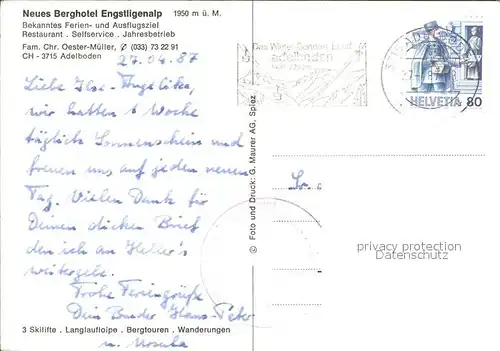 Neues Berghotel Engstligenalp 1950 m ü. M.
Bekanntes Ferien- und Ausflugsziel
Restaurant . Selfservice . Jahresbetrieb
Fam. Chr. Oester-Müller, (033) 73 22 91
CH - 3715 Adelboden
27.04.87
Liebe Ilse-Angelika,
wir hatten 1 Woche
täglich Sonnenschein und
freuen uns auf jeden neuen
Tag. Vielen Dank für
Deinen dicken Brief
den ich an Heller's
weitergebe.
Frohe Feriengrüße
Dein Bruder Hans-Peter
u. Ursula
3 Skilifte . Langlaufloipe . Bergtouren . Wanderungen
© Foto und Druck: G. Maurer AG, Spiez
adelboden
HELVETIA 80
privacy protection
Datenschutz